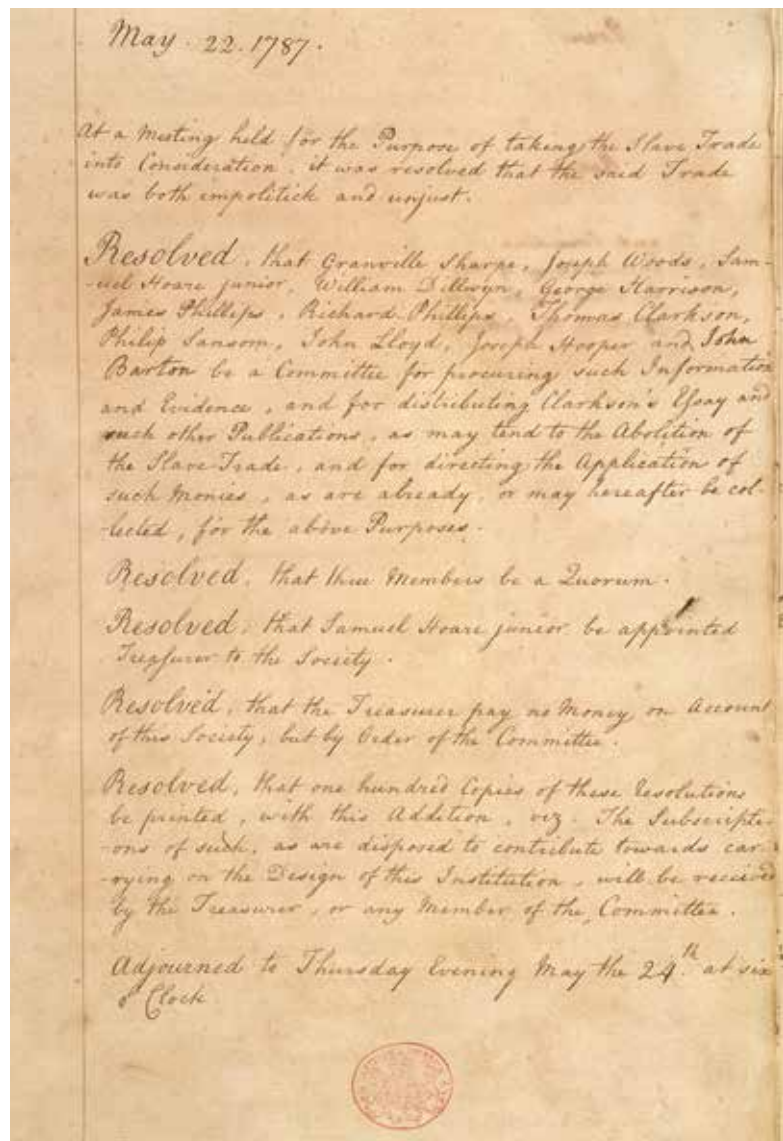 May . 22 . 1787 .
At a Meeting held for the Purpose of taking the Slave Trade
into Consideration, it was resolved that the said Trade
was both impolitick and unjust.
Resolved, that Granville Sharpe, Joseph Woods, Sam-
-uel Hoare junior, William Dillwyn, George Harrison,
James Phillips, Richard Phillips, Thomas Clarkson,
Philip Sansom, John Lloyd, Joseph Hooper and John
Barton be a Committee for procuring such Information
and Evidence, and for distributing Clarkson's Essay and
such other Publications, as may tend to the Abolition of
the Slave Trade, and for directing the Application of
such Monies, as are already, or may hereafter be col-
-lected, for the above Purposes.
Resolved, that three Members be a Quorum.
Resolved, that Samuel Hoare junior be appointed
Treasurer to the Society.
Resolved, that the Treasurer pay no Money on Account
of this Society, but by Order of the Committee.
Resolved, that one hundred Copies of these Resolutions
be printed, with this Addition, viz. The Subscripti-
-ons of such, as are disposed to contribute towards car-
-rying on the Design of this Institution, will be received
by the Treasurer, or any Member of the Committee.
Adjourned to Thursday Evening May the 24th. at six
o'Clock